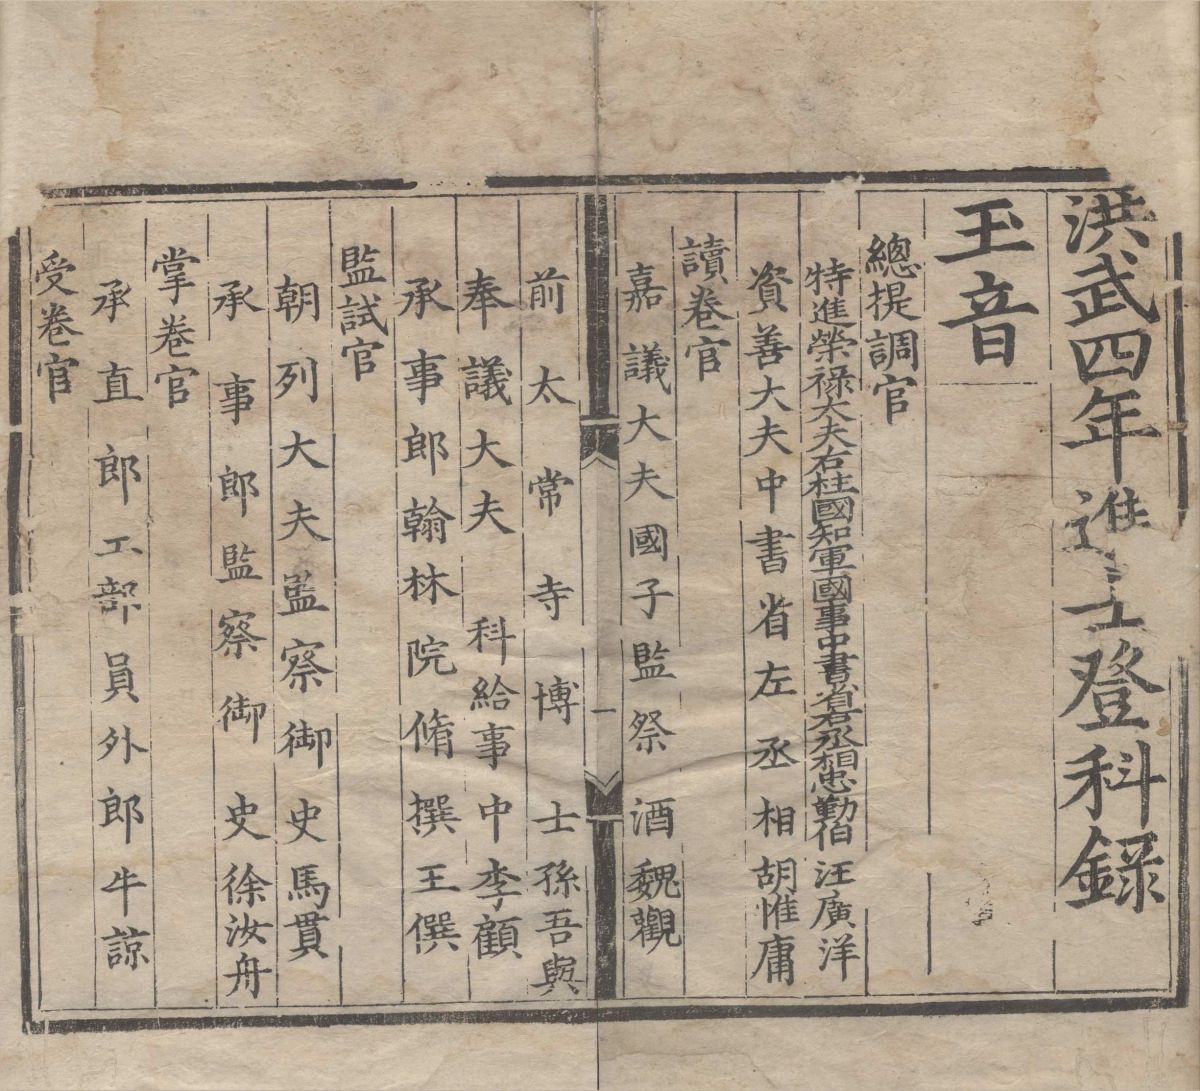 洪武四年進士登科錄
玉音
總提調官
特進榮祿大夫右柱國知軍國事中書省右丞相忠勤伯汪廣洋
資善大夫中書省左丞相胡惟庸
讀卷官
嘉議大夫國子監祭酒魏觀
一
前太常寺博士孫吾與
奉議大夫 科給事中李顧
承事郎翰林院脩撰王僎
監試官
朝列大夫監察御史馬貫
承事郎監察御史徐汝舟
掌卷官
承直郎工部員外郎牛諒
受卷官